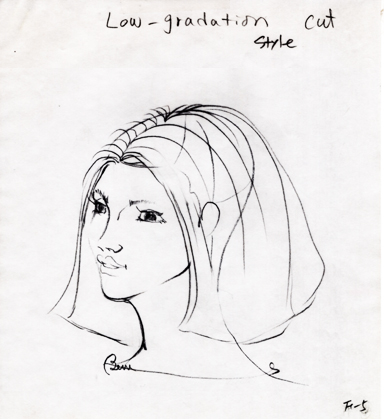 Low-gradation cut
style